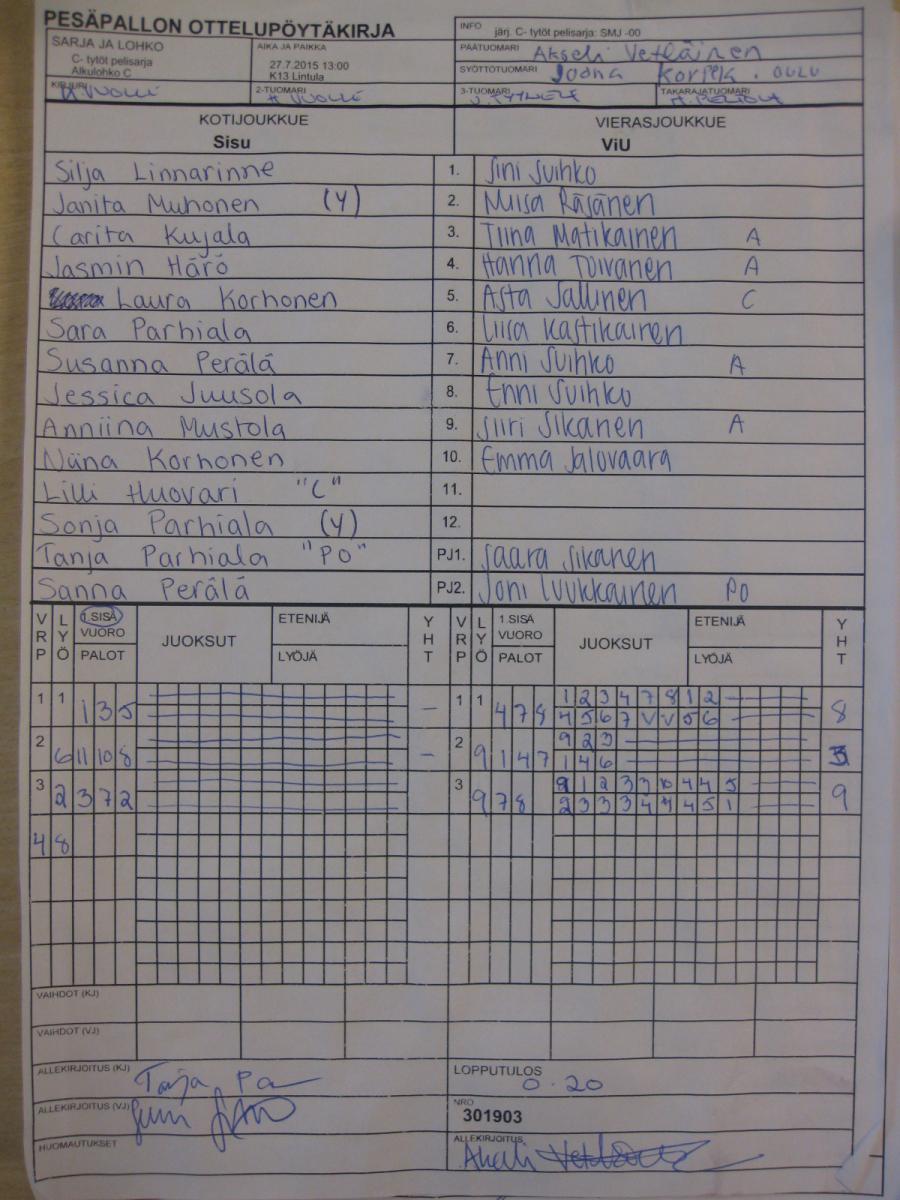 PESÄPALLON OTTELUPÖYTÄKIRJA
INFO järj. C- tytöt pelisarja: SMJ -00
SARJA JA LOHKO
C- tytöt pelisarja
Alkulohko C
AIKA JA PAIKKA
27.7.2015 13:00
K13 Lintula
PÄÄTUOMARI Akseli Veteläinen
SYÖTTÖTUOMARI Joona OULU
KIRJURI
2-TUOMARI
3-TUOMARI
TAKARAJATUOMARI
KOTIJOUKKUE
Sisu
VIERASJOUKKUE
ViU
Silja Linnarinne 1. Sini Suihko
Janita Muhonen (Y) 2. Miisa Räsänen
Carita Kujala 3. Tiina Matikainen A
Jasmin Härö 4. Hanna Toivanen A
Laura Korhonen 5. Asta Sallinen C
Sara Parhiala 6. Liisa Kastikainen
Susanna Perälä 7. Anni Suihko A
Jessica Juusola 8. Enni Suihko
Anniina Mustola 9. Siiri Sikanen A
Näna Korhonen 10. Emma Jalovaara
Lilli Huovari "C" 11.
Sonja Parhiala (Y) 12.
Tanja Parhiala "PO" PJ1. Saara Sikanen
Sanna Perälä PJ2. Joni Luukkainen PO
VRP LYÖ 1.SISÄ VUORO PALOT JUOKSUT ETENIJÄ LYÖJÄ YHT VRP LYÖ 1.SISÄ VUORO PALOT JUOKSUT ETENIJÄ LYÖJÄ YHT
1 1 1 3 5 – 1 1 4 7 8 1 2 3 4 7 8 1 2 8
4 5 6 7 V V 5 6
2 6 11 10 8 – 2 9 1 4 7 9 2 3 3
1 4 6
3 2 3 7 2 3 9 7 8 9 1 2 3 3 10 4 4 5 9
2 3 3 3 4 4 4 5 1
4 8
VAIHDOT (KJ)
VAIHDOT (VJ)
ALLEKIRJOITUS (KJ) Tanja Pa
LOPPUTULOS 0-20
ALLEKIRJOITUS (VJ)
NRO
301903
HUOMAUTUKSET
ALLEKIRJOITUS Akseli